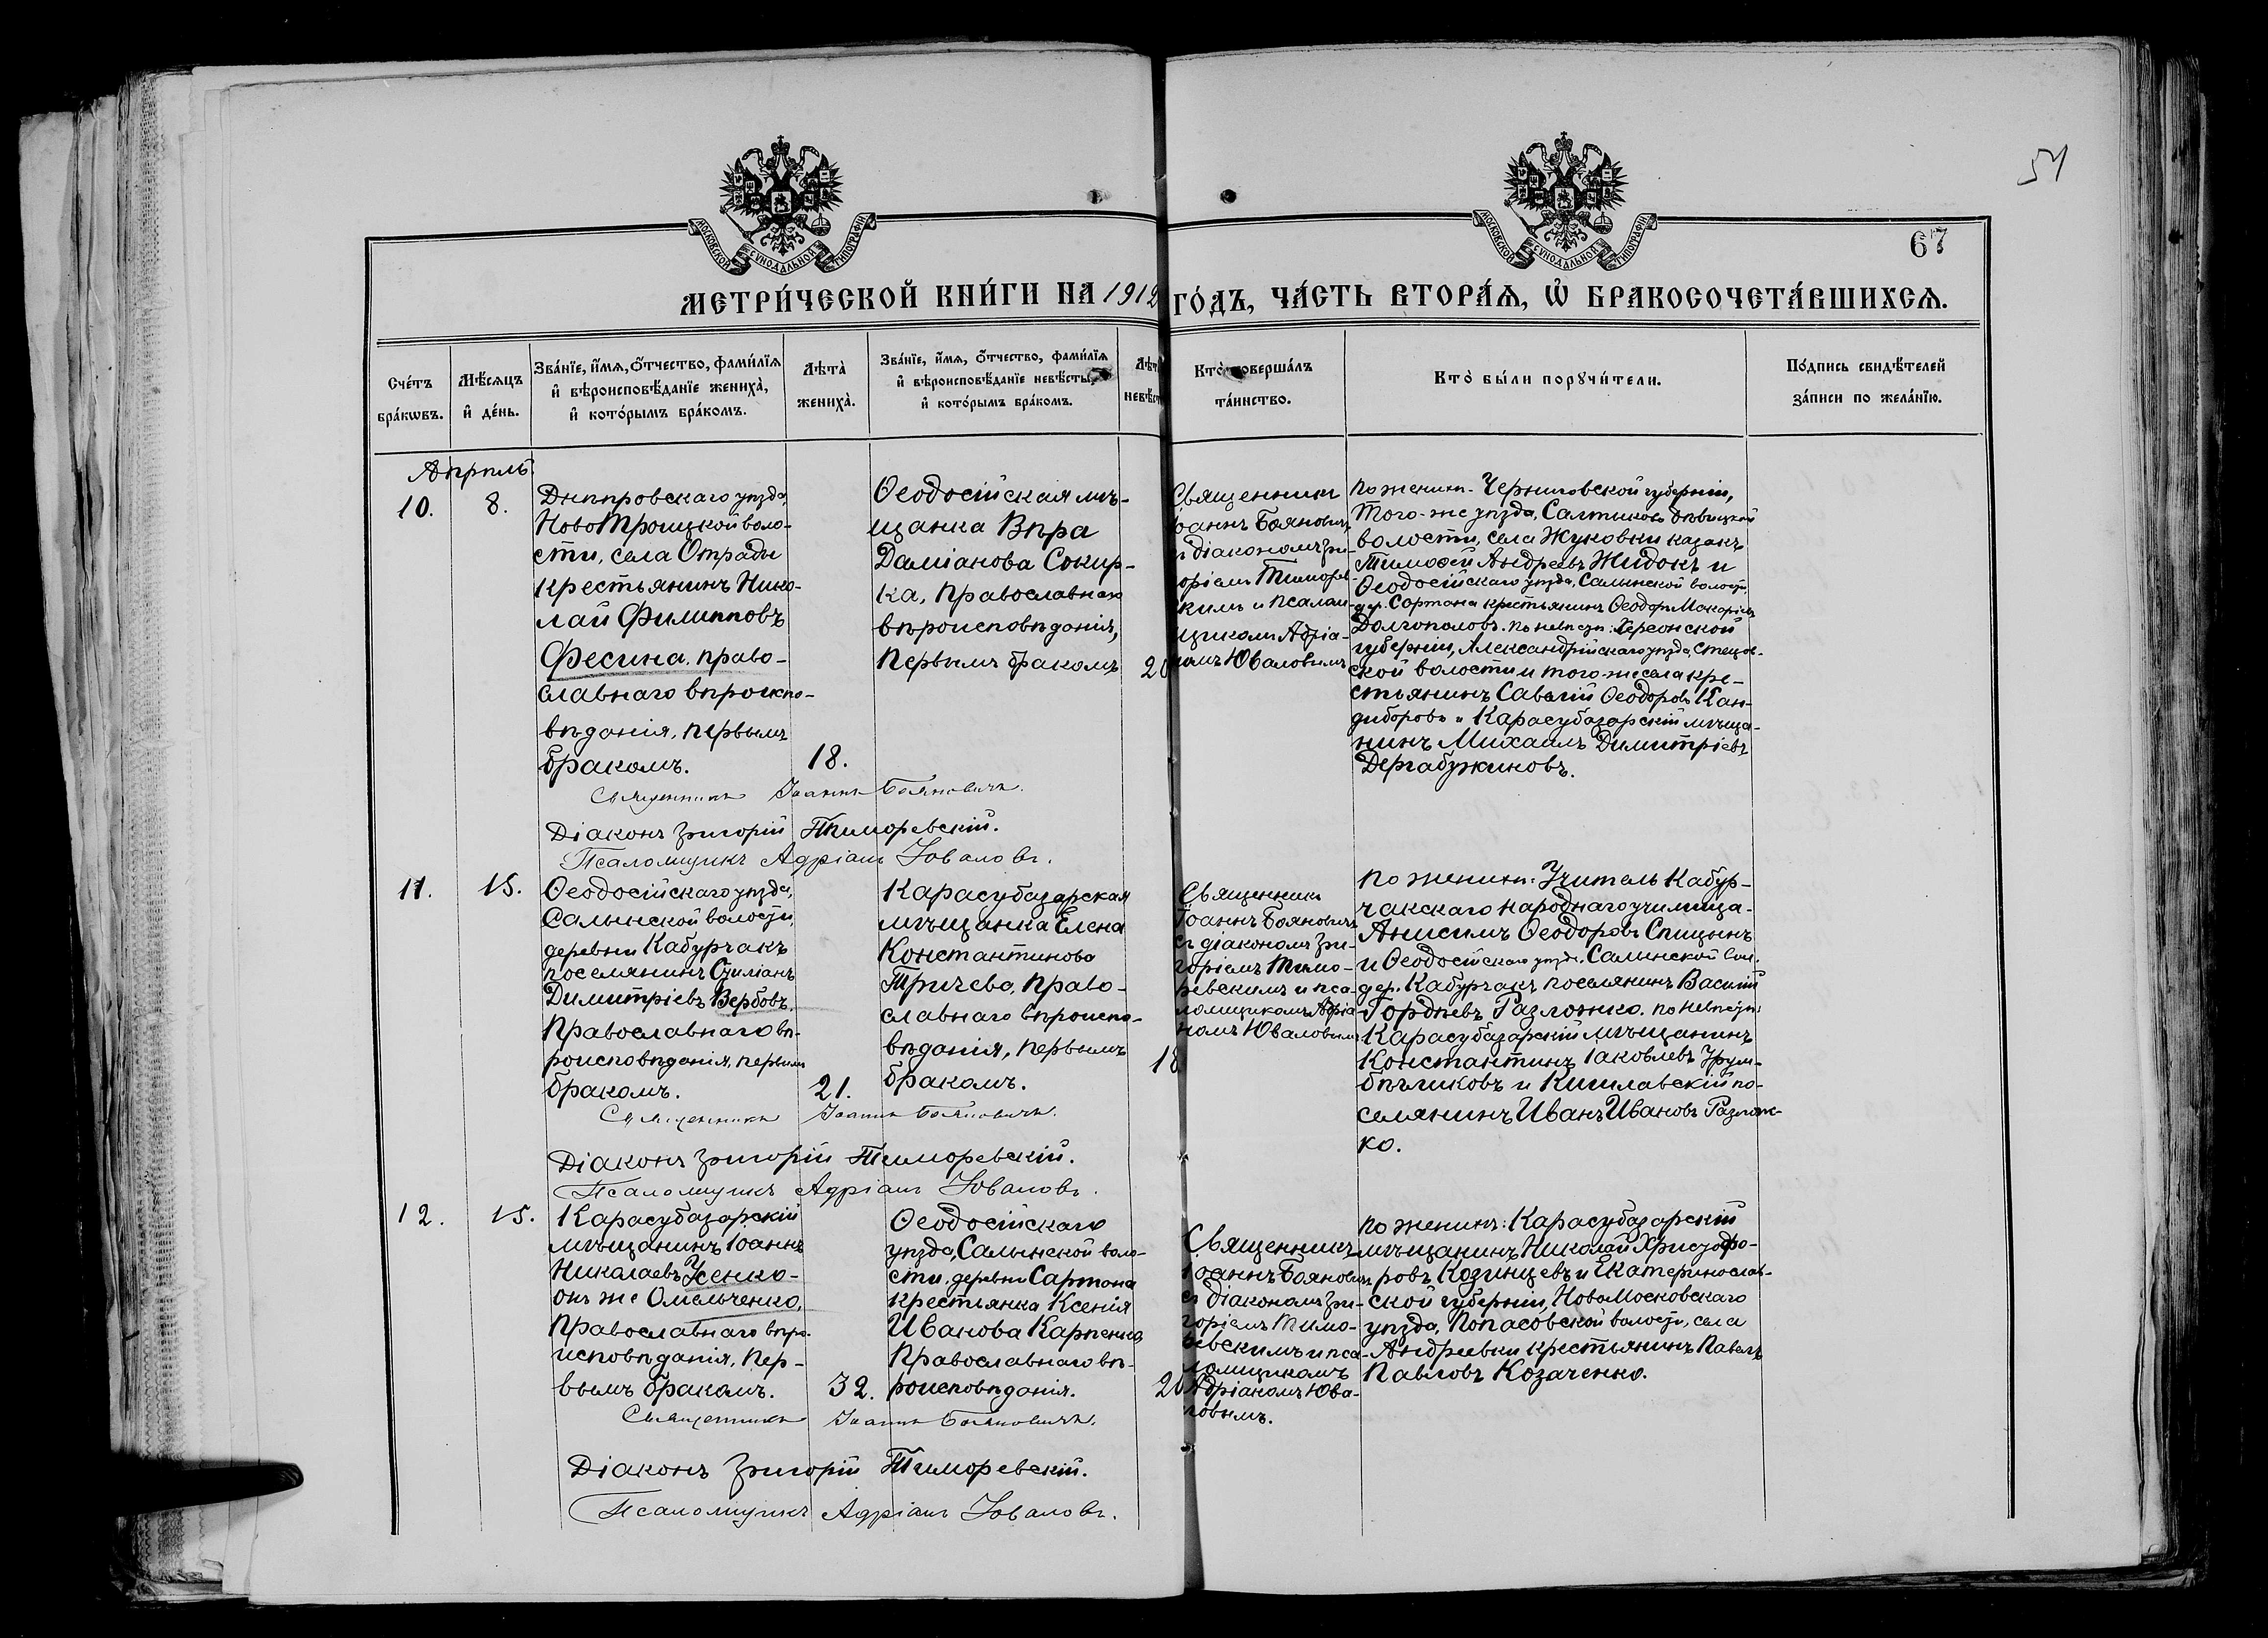 51
МОСКОВСКОЙ СУНОДАЛЬНОЙ ТИПОГРАФІИ
МОСКОВСКОЙ СУНОДАЛЬНОЙ ТИПОГРАФІИ
67
МЕТРИ́ЧЕСКОЙ КНИ́ГИ НА 1912
ГО́ДЪ, ЧА́СТЬ ВТОРА́Ѧ, Ѽ БРАКОСОЧЕТА́ВШИХСѦ.
Сче́тъ
бра́кѡвъ.
Мѣ́сѧцъ
и҆ де́нь.
Зва́нїе, и҆́мѧ, ѻ҆́тчество, фами́лїѧ
и҆ вѣроисповѣ́данїе жениха̀,
и҆ кото́рымъ бра́комъ.
Лѣта̀
жениха̀.
Зва́нїе, и҆́мѧ, ѻ҆́тчество, фами́лїѧ
и҆ вѣроисповѣ́данїе невѣ́сты,
и҆ кото́рымъ бра́комъ.
Лѣт
невѣ́ст
Кто̀ совершалъ
та́инство.
Кто̀ бы́ли порꙋчи́тели.
По́дпись свидѣ́телей
за́писи по жела́нїю.
Апрѣль
10.
8.
Днѣпровскаго уѣзда,
НовоТроицкой воло-
сти, села Отрады
крестьянинъ Нико-
лай Филипповъ
Фесина, право-
славнаго вѣроиспо-
вѣданія, первымъ
бракомъ.
18.
Ѳеодосійская мѣ-
щанка Вѣра
Даміанова Сокир-
ка, Православнаго
вѣроисповѣданія,
первымъ бракомъ
20
Священникъ
Іоаннъ Бояновичъ
діакономъ Гри-
горіемъ Тиморев-
скимъ и псалом-
щикомъ Адріа-
номъ Юваловымъ
по женихѣ: Черниговской губерніи,
того-же уѣзда, Салтыково Дѣвицкой
волости, села Жуковки казакъ
Тимоѳей Андреевъ Жидокъ и
Ѳеодосійскаго уѣзда, Салынской волости,
дер. Сартана крестьянинъ Ѳеодоръ Макаріевъ
Долгополовъ. по невѣстѣ: Херсонской
губерніи, Александрійскаго уѣзда, Стецов-
ской волости и того-же села кре-
стьянинъ Савелій Ѳеодоровъ Кан-
диборовъ и Карасубазарскій мѣща-
нинъ Михаилъ Димитріевъ
Дергабужиновъ.
Священникъ Іоаннъ Бояновичъ.
Діаконъ Григорій Тиморевскій.
Псаломщикъ Адріанъ Юваловъ.
11.
15.
Ѳеодосійскаго уѣзда,
Салынской волости,
деревни Кабурчакъ
поселянинъ Стиліанъ
Димитріевъ Вербовъ,
Православнаго вѣ-
роисповѣданія, первымъ
бракомъ.
21.
Карасубазарская
мѣщанка Елена
Константинова
Тричева, Право-
славнаго вѣроиспо-
вѣданія, первымъ
бракомъ.
18
Священникъ
Іоаннъ Бояновичъ
съ діакономъ Гри-
горіемъ Тимо-
ревскимъ и пса-
ломщикомъ Адріа
номъ Юваловымъ
по женихѣ: Учитель Кабур-
чакскаго народнаго училища
Анисимъ Ѳеодоровъ Спицынъ
и Ѳеодосійскаго уѣзда, Салынской вол.
дер. Кабурчакъ поселянинъ Василій
Гордѣевъ Разложко. по невѣстѣ:
Карасубазарскій мѣщанинъ
Константинъ Іаковлевъ Урум-
бѣгликовъ и Кишлавскій по-
селянинъ Иванъ Ивановъ Разлож-
ко.
Священникъ Іоаннъ Бояновичъ.
Діаконъ Григорій Тиморевскій.
Псаломщикъ Адріанъ Юваловъ.
12.
15.
Карасубазарскій
мѣщанинъ Іоаннъ
Николаевъ Усенко-
онъ же Омельченко,
Православнаго вѣро-
исповѣданія, пер-
вымъ бракомъ.
32.
Ѳеодосійскаго
уѣзда, Салынской воло-
сти, деревни Сартана
крестьянка Ксенія
Иванова Карпенко,
Православнаго вѣ-
роисповѣданія.
20
Священникъ
Іоаннъ Бояновичъ
съ діакономъ Гри-
горіемъ Тимо-
ревскимъ и пса-
ломщикомъ
Адріаномъ Юва-
ловымъ.
по женихѣ: Карасубазарскій
мѣщанинъ Николай Христофо-
ровъ Козинцевъ и Екатеринослав-
ской губерніи, НовоМосковскаго
уѣзда, Попасовской волости, села
Андреевки крестьянинъ Павелъ
Павловъ Козаченко.
Священникъ Іоаннъ Бояновичъ.
Діаконъ Григорій Тиморевскій.
Псаломщикъ Адріанъ Юваловъ.